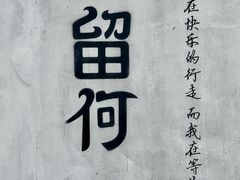 在快乐的行走 而我在等
留何